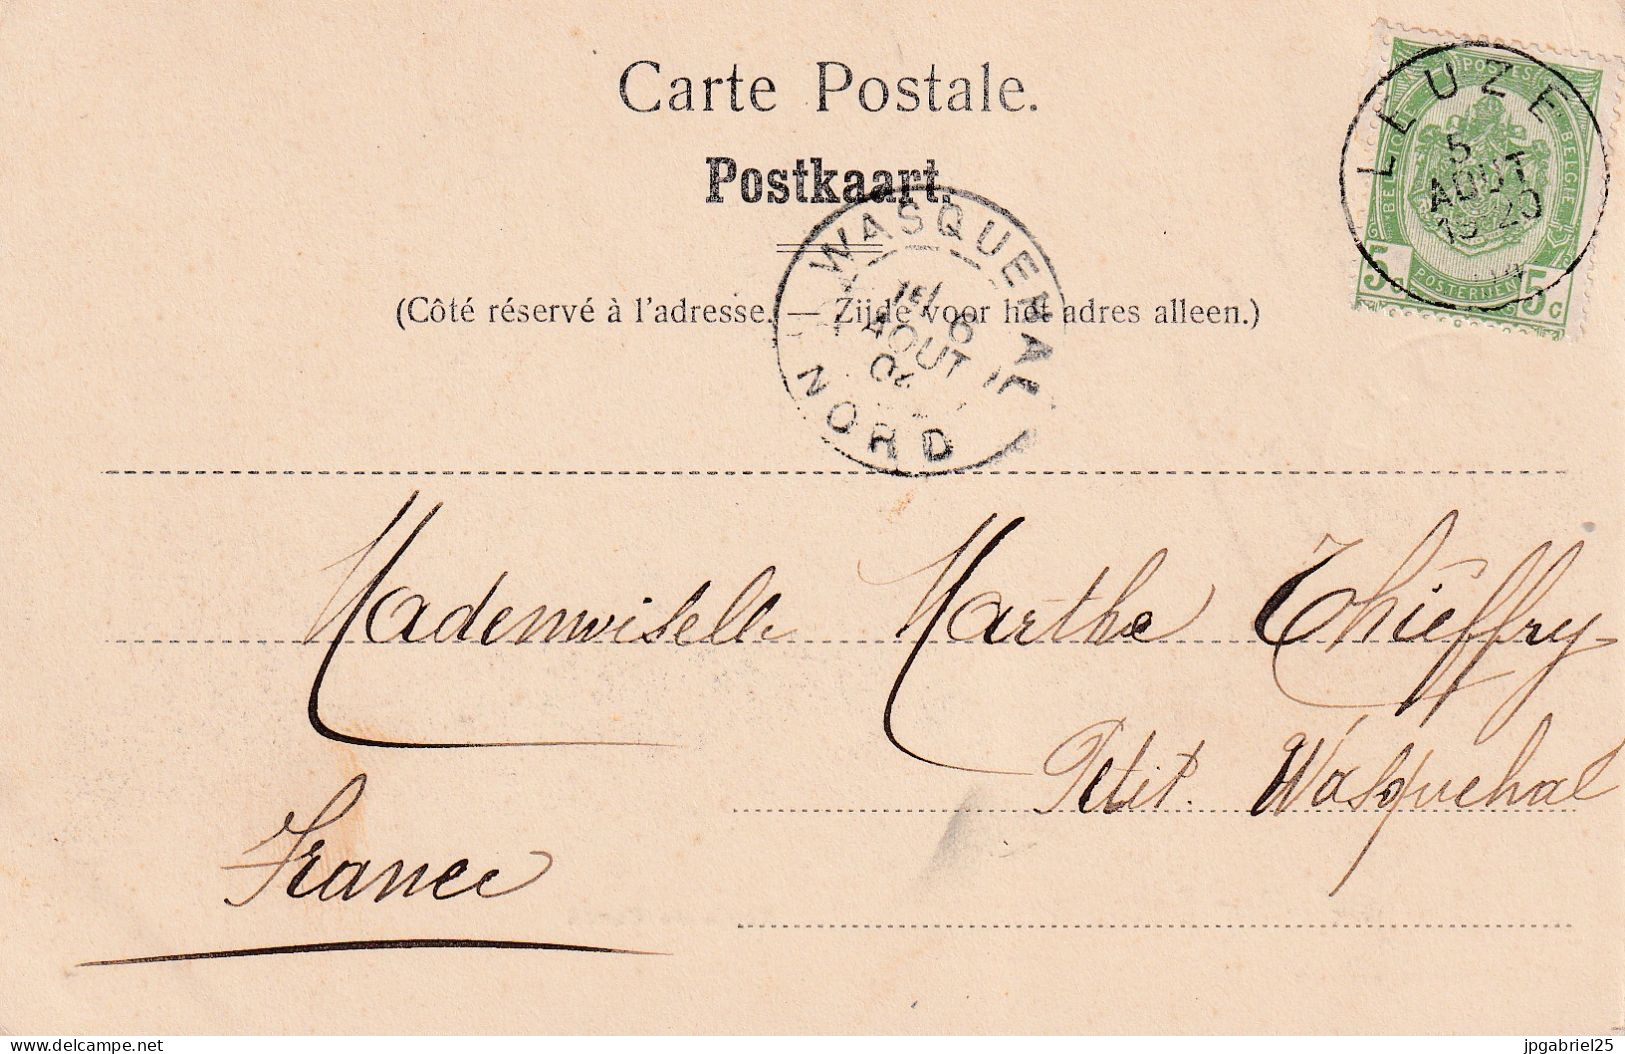 Carte Postale.
Postkaart.
(Côté réservé à l'adresse. — Zijde voor het adres alleen.)
LEUZE
5
AOUT
POSTES
BELGIQUE
BELGIE
POSTERIJEN
5c
5c
WASQUEHAL
6
AOUT
NORD
Mademoiselle Marthe Thieffry
Petit Wasquehal
France
jpgabriel25
www.delcampe.net